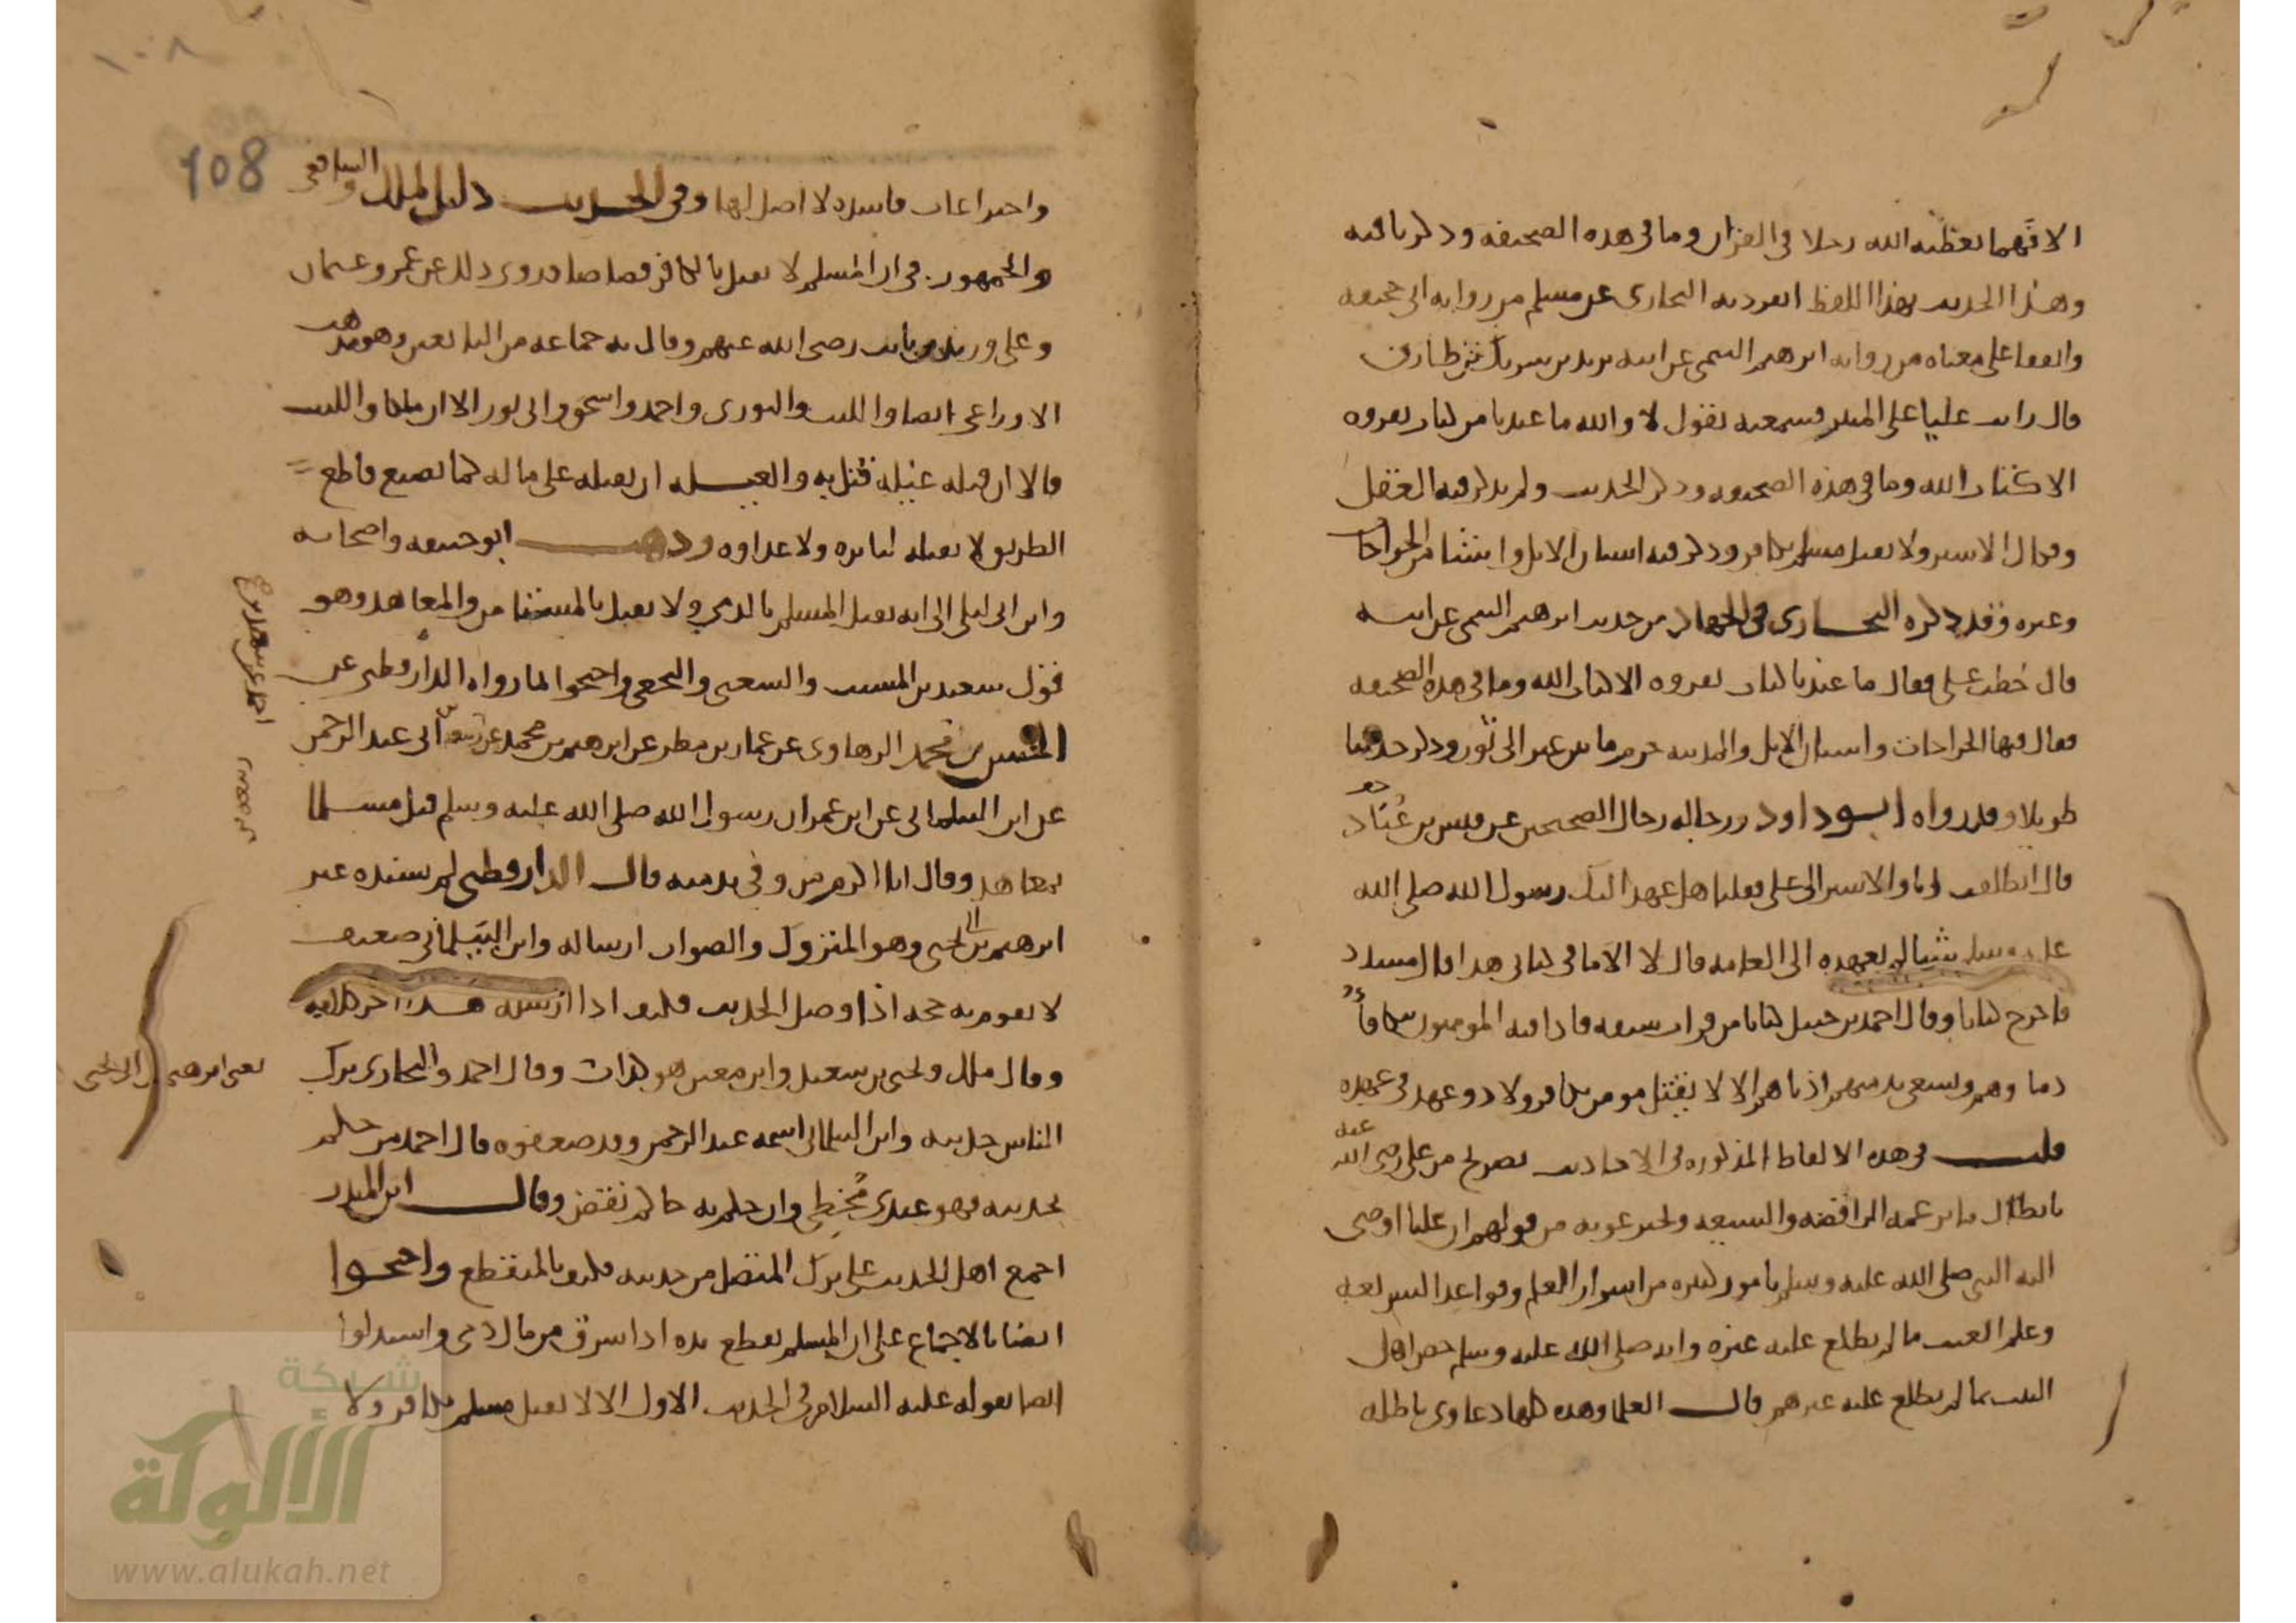 الا فهما يعطيه الله رجلا في القران وما في هذه الصحيفة وذكر باقيه
وهذا الحديث بهذا اللفظ انفرد به البخاري عن مسلم من رواية ابي جحيفة
واتفقا على معناه من رواية ابرهيم التيمي عن ابيه يزيد بن شريك بن طارق
قال رايت عليا على المنبر فسمعته يقول لا والله ما عندنا من كتاب نقروه
الا كتاب الله وما في هذه الصحيفة وذكر الحديث ولم يذكر فيه العقل
وفكاك الاسير ولا يقتل مسلم بكافر وذكر فيه اسنان الابل واشيا من الجراحات
وغيره وقد ذكره البخاري في الجهاد من حديث ابرهيم التيمي عن ابيه
قال خطب علي فقال ما عندنا كتاب نقروه الا كتاب الله وما في هذه الصحيفة
فقال فيها الجراحات واسنان الابل والمدينة حرم ما بين عير الى ثور وذكر حديثا
طويلا وقد رواه ابو داود ورجاله رجال الصحيحين عن قيس بن عباد
قال انطلقت انا والاشتر الى علي فقلنا هل عهد اليك رسول الله صلى الله
عليه وسلم شيئا لم يعهده الى العامة قال لا الا ما في كتابي هذا قال مسدد
فاخرج كتابا وقال احمد بن حنبل كتابا من قراب سيفه فاذا فيه المومنون تكافأ
دماوهم ويسعى بذمتهم ادناهم الا لا يقتل مومن بكافر ولا ذو عهد في عهده
قلت في هذه الالفاظ المذكورة في الاحاديث تصريح من علي رضي الله عنه
بابطال ما يزعمه الرافضة والشيعة ويخترعونه من قولهم ان عليا اوصى
اليه النبي صلى الله عليه وسلم بامور كثيرة من اسرار العلم وقواعد الشريعة
وعلم الغيب ما لم يطلع عليه غيره وانه صلى الله عليه وسلم خص اهل
البيت بما لم يطلع عليه غيرهم قال العلما وهذه كلها دعاوى باطلة
١٠٨
108
واختراعات فاسدة لا اصل لها وفي الحديث دليل لملك والشافعي
والجمهور في ان المسلم لا يقتل بالكافر قصاصا وروي ذلك عن عمر وعثمان
وعلي وزيد بن ثابت رضي الله عنهم وقال به جماعة من التابعين وهو مذهب
الاوزاعي ايضا والليث والثوري واحمد واسحق وابي ثور الا ان ملكا والليث
قالا ان قتله غيلة قتل به والغيلة ان يقتله على ماله كما يصنع قاطع
الطريق لا يقتله لثائرة ولا عداوة وذهب ابو حنيفة واصحابه
وابن ابي ليلى الى انه يقتل المسلم بالذمي ولا يقتل بالمستامن والمعاهد وهو
قول سعيد بن المسيب والشعبي والنخعي واحتجوا لما رواه الدارقطني عن
الحسن بن محمد الرهاوي عن عمار بن مطر عن ابرهيم بن محمد عن ربيعة بن ابي عبد الرحمن
عن ابن البيلماني عن ابن عمر ان رسول الله صلى الله عليه وسلم قتل مسلما
بمعاهد وقال انا اكرم من وفى بذمته قال الدارقطني لم يسنده غير
ابرهيم بن ابي يحيى وهو المتروك والصواب ارساله وابن البيلماني ضعيف
لا يقوم به حجة اذا وصل الحديث فكيف اذا ارسله هذا اخر كلامه
وقال ملك ويحيى بن سعيد وابن معين هو كذاب وقال احمد والبخاري ترك
يعني ابرهيم بن ابي يحيى
الناس حديثه وابن البيلماني اسمه عبد الرحمن وقد ضعفوه قال احمد من حكم
بحديثه فهو عندي مخطي وان حكم به حاكم نقض وقال ابن المنذر
اجمع اهل الحديث على ترك المتصل من حديثه فكيف بالمنقطع واحتجوا
ايضا بالاجماع على ان المسلم يقطع يده اذا سرق من مال ذمي واستدلوا
ايضا بقوله عليه السلام في الحديث الاول الا لا يقتل مسلم بكافر ولا
شبكة
الألوكة
www.alukah.net